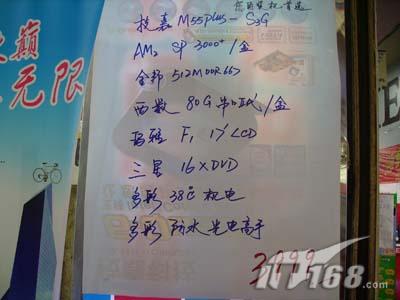 您的装机首选
捷嘉 M55plus-S3G
AM2 SP 3000+/盒
金邦 512M DDR667
西数 80G 串口/盒
玛雅 F1 17'LCD
三星 16XDVD
多彩 38℃机电
多彩 防水光电高手
3999
IT168.com
巅
无限